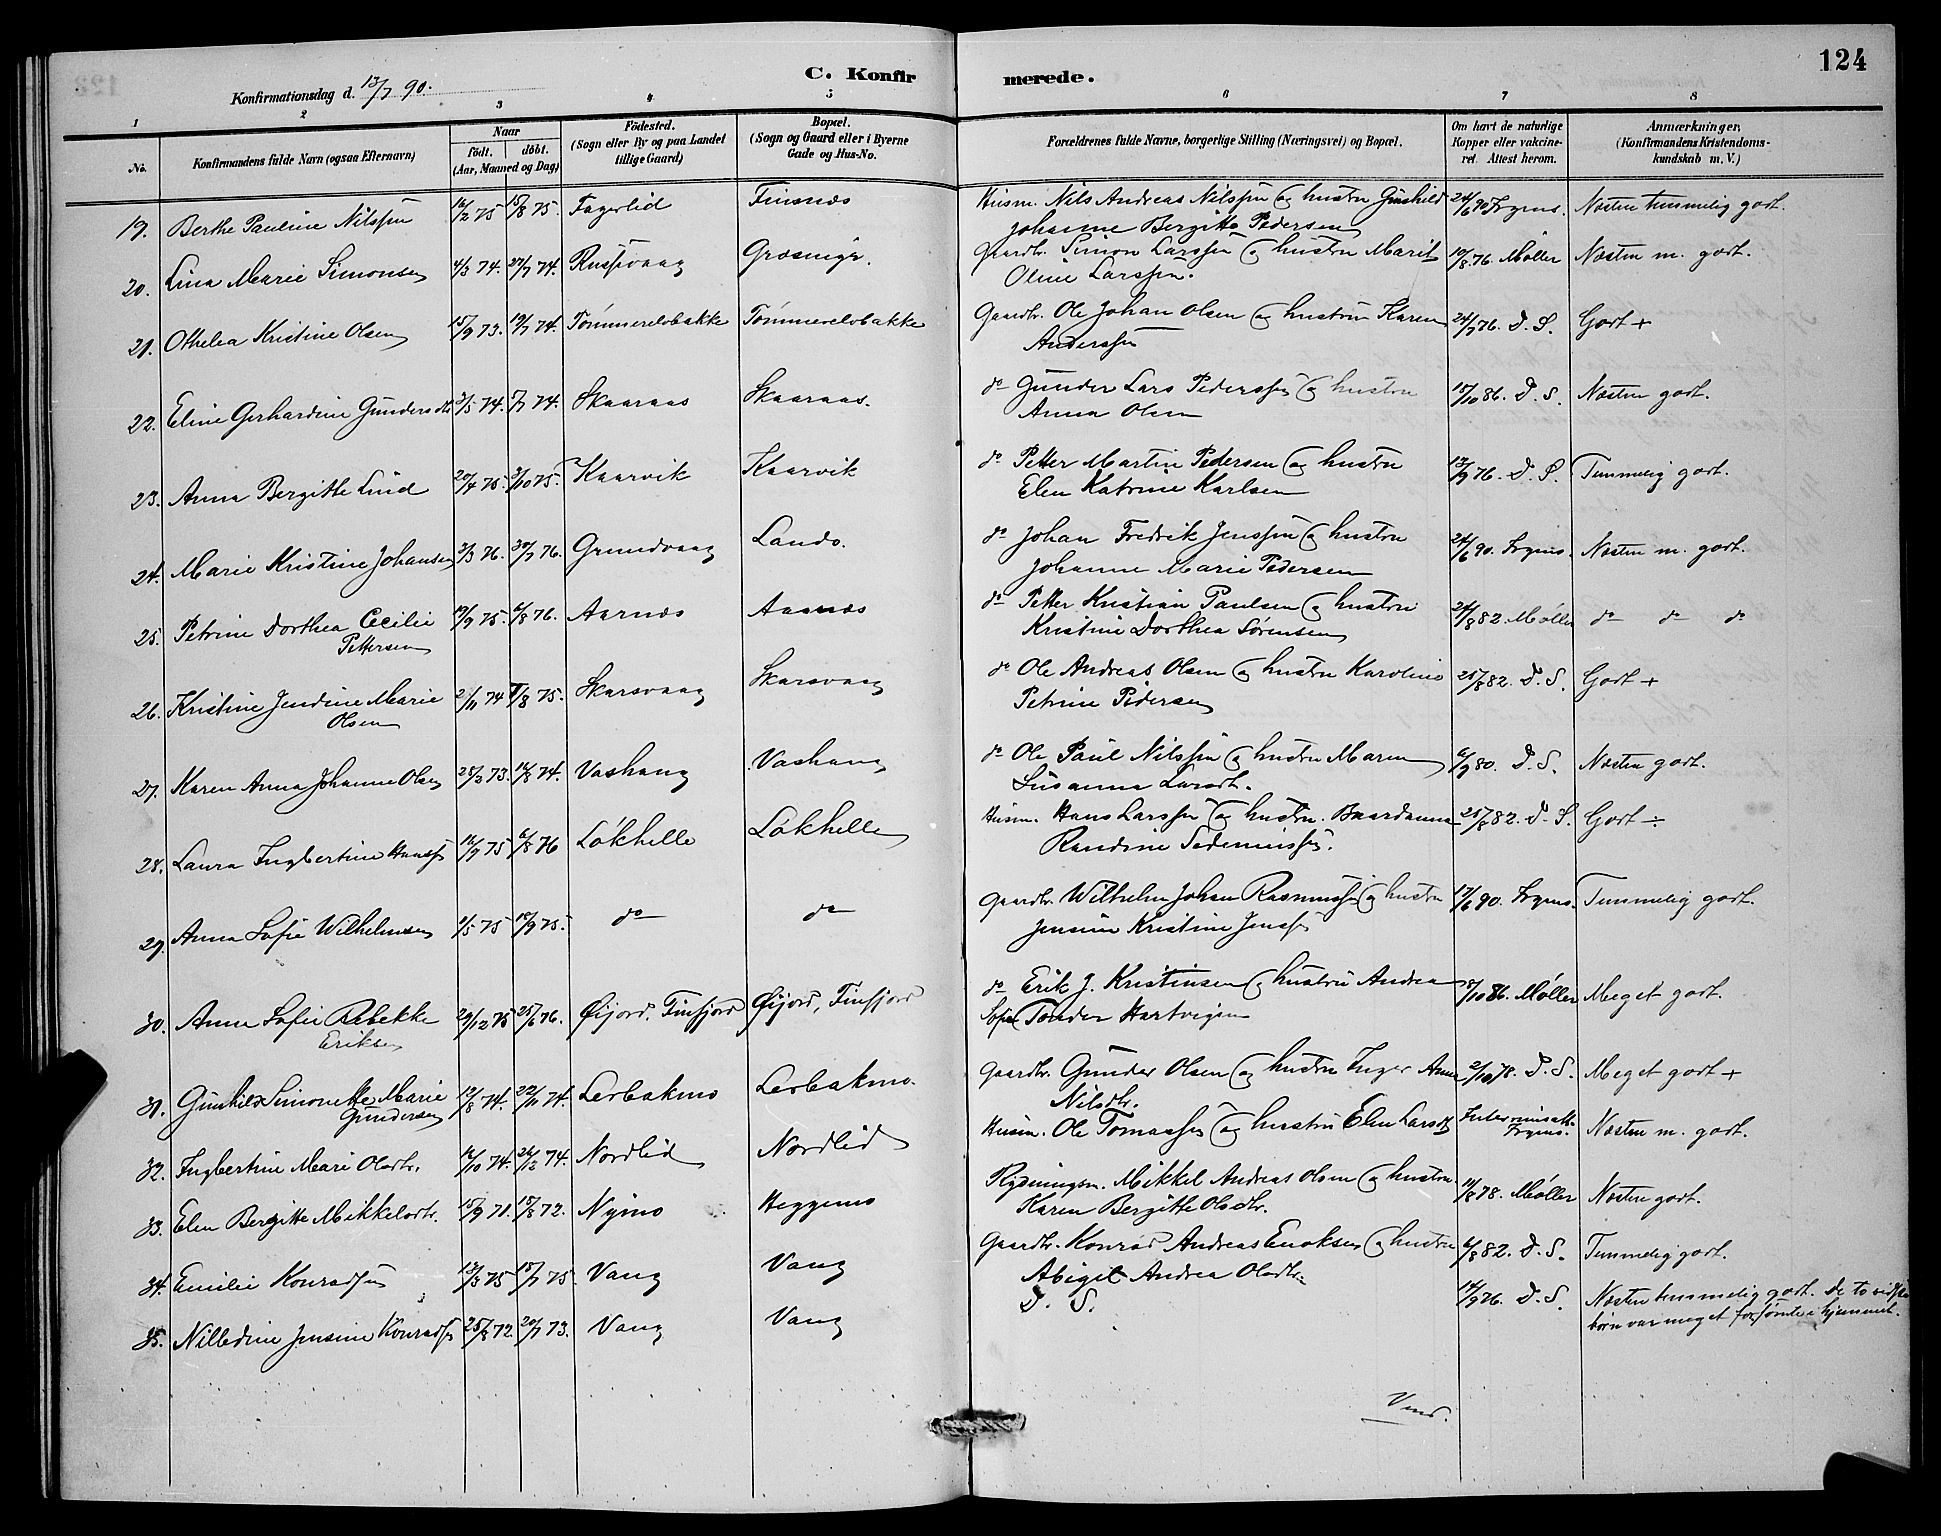 124
C. Konfirmerede.
Konfirmationsdag d. 13/7 90.
1 2 3 4 5 6 7 8
No. Konfirmandens fulde Navn (ogsaa Efternavn) Naar födt. döbt. (Aar, Maaned og Dag) Födested. (Sogn eller By og paa Landet tillige Gaard) Bopæl. (Sogn og Gaard eller i Byerne Gade og Hus-No. Forældrenes fulde Navne, borgerlige Stilling (Næringsvei) og Bopæl. Om havt de naturlige Kopper eller vakcineret. Attest herom. Anmærkninger, (Konfirmandens Kristendomskundskab m. V.)
19. Berthe Pauline Nilssen 16/2 75 15/8 75. Fagerlid Finsnæs Husm. Nils Andreas Nilssen og hustru Gunhild 24/6 90 Irgens. Næsten temmelig godt.
Johanne Bergitte Pedersen
20. Lina Marie Simonsen 4/3 74. 27/7 74. Russevaag Græsmyr. Gaardbr. Simon Larssen og hustru Marit 10/8 76. Møller Næsten m. godt.
Oline Larssen.
21. Othelea Kristine Olsen 15/9 73. 19/7 74. Tømmerelvbakke Tømmerelvbakke Gaardbr. Ole Johan Olsen og hustru Karen 24/7 76. D. S. Godt +
Anderssen
22. Eline Gerhardine Gundersdtr 3/5 74. 5/7 74. Skaaraas Skaaraas. do Gunder Lars Pederssen og hustru 15/10 86. D. S. Næsten godt.
Anna Olsen
23. Anna Bergitte Lind 20/4 75. 3/10 75. Kaarvik Kaarvik do Petter Martin Pedersen og hustru 13/9 76. D. S. Temmelig godt.
Elen Katrine Karlsen
24. Marie Kristine Johansen 3/3 76. 30/7 76. Grundvaag Lands. do Johan Fredrik Jenssen og hustru 24/6 90. Irgens. Næsten m. godt.
Johanne Marie Pedersen
25. Petrine Dorthea Cecilie 19/9 75. 6/8 76. Aarnæs Aarnæs do Petter Kristian Paulsen og hustru 24/8 82. Møller do do do
Pettersen Kristine Dorthea Sørensen
26. Kristine Jendine Marie 2/11 74 1/8 75. Skarsvaag Skarsvaag do Ole Andreas Olsen og hustru Karoline 25/8 82. D. S. Godt +
Olsen Petrine Pedersen
27. Karen Anna Johanne Olsen 25/3 73. 16/8 74. Vashaug Vashaug do Ole Paul Nilssen og hustru Maren 6/9 80. D. S. Næsten godt.
Susanna Larsdt.
28. Laura Ingbertine Hanssen 16/9 75 6/8 76 Løkhelle Løkhelle Husm. Hans Larssen og hustru Baardanna 25/8 82. D. S. Godt ÷
Randine
29. Anna Sofie Wilhelmsen 1/5 75 19/9 75. do do Gaardbr. Wilhelm Johan Rasmussen og hustru 17/6 90. Irgens. Temmelig godt.
Jensine Kristine Jenssen
30. Anna Sofie Rebekke 29/12 75 25/6 76. Øijord, Finfjord Øijord, Finfjord do Erik J. Kristinsen og hustru Andrea 5/10 86. Møller Meget godt.
Eriksen Tønder Hartvigsen
31. Gunhild Simonette Marie 12/8 74. 22/11 74. Lerbakmo Lerbakmo. Gaardbr. Gunder Olsen og hustru Inger Anna 2/10 78. D. S. Meget godt +
Gundersen Nilsdtr.
32. Ingbertine Mari Olsdtr. 16/10 74. 26/12 74. Nordlid Nordlid Husm. Ole Tomassen og hustru Elen Larsdt Irgens. Næsten m. godt.
33. Elen Bergitte Mikkelsdtr. 15/9 71. 18/8 72. Nymo Heggemo Rydningsm. Mikkel Andreas Olsen og hustru 11/8 78. Møller Næsten godt.
Karen Bergitte Olsdtr.
34. Emilie Konradsen 13/3 75 18/7 75. Vang Vang Gaardbr. Konrad Andreas Enoksen og hustru 6/8 82. D. S. Temmelig godt.
Abigel Andrea Olsdtr.
35. Nilledine Jensine Konradsen 25/3 72. 20/7 73. Vang Vang D. S. 14/9 76. D. S. Næsten temmelig godt. De to sidste
børn var meget forsømte i hjemmet.
Vend.